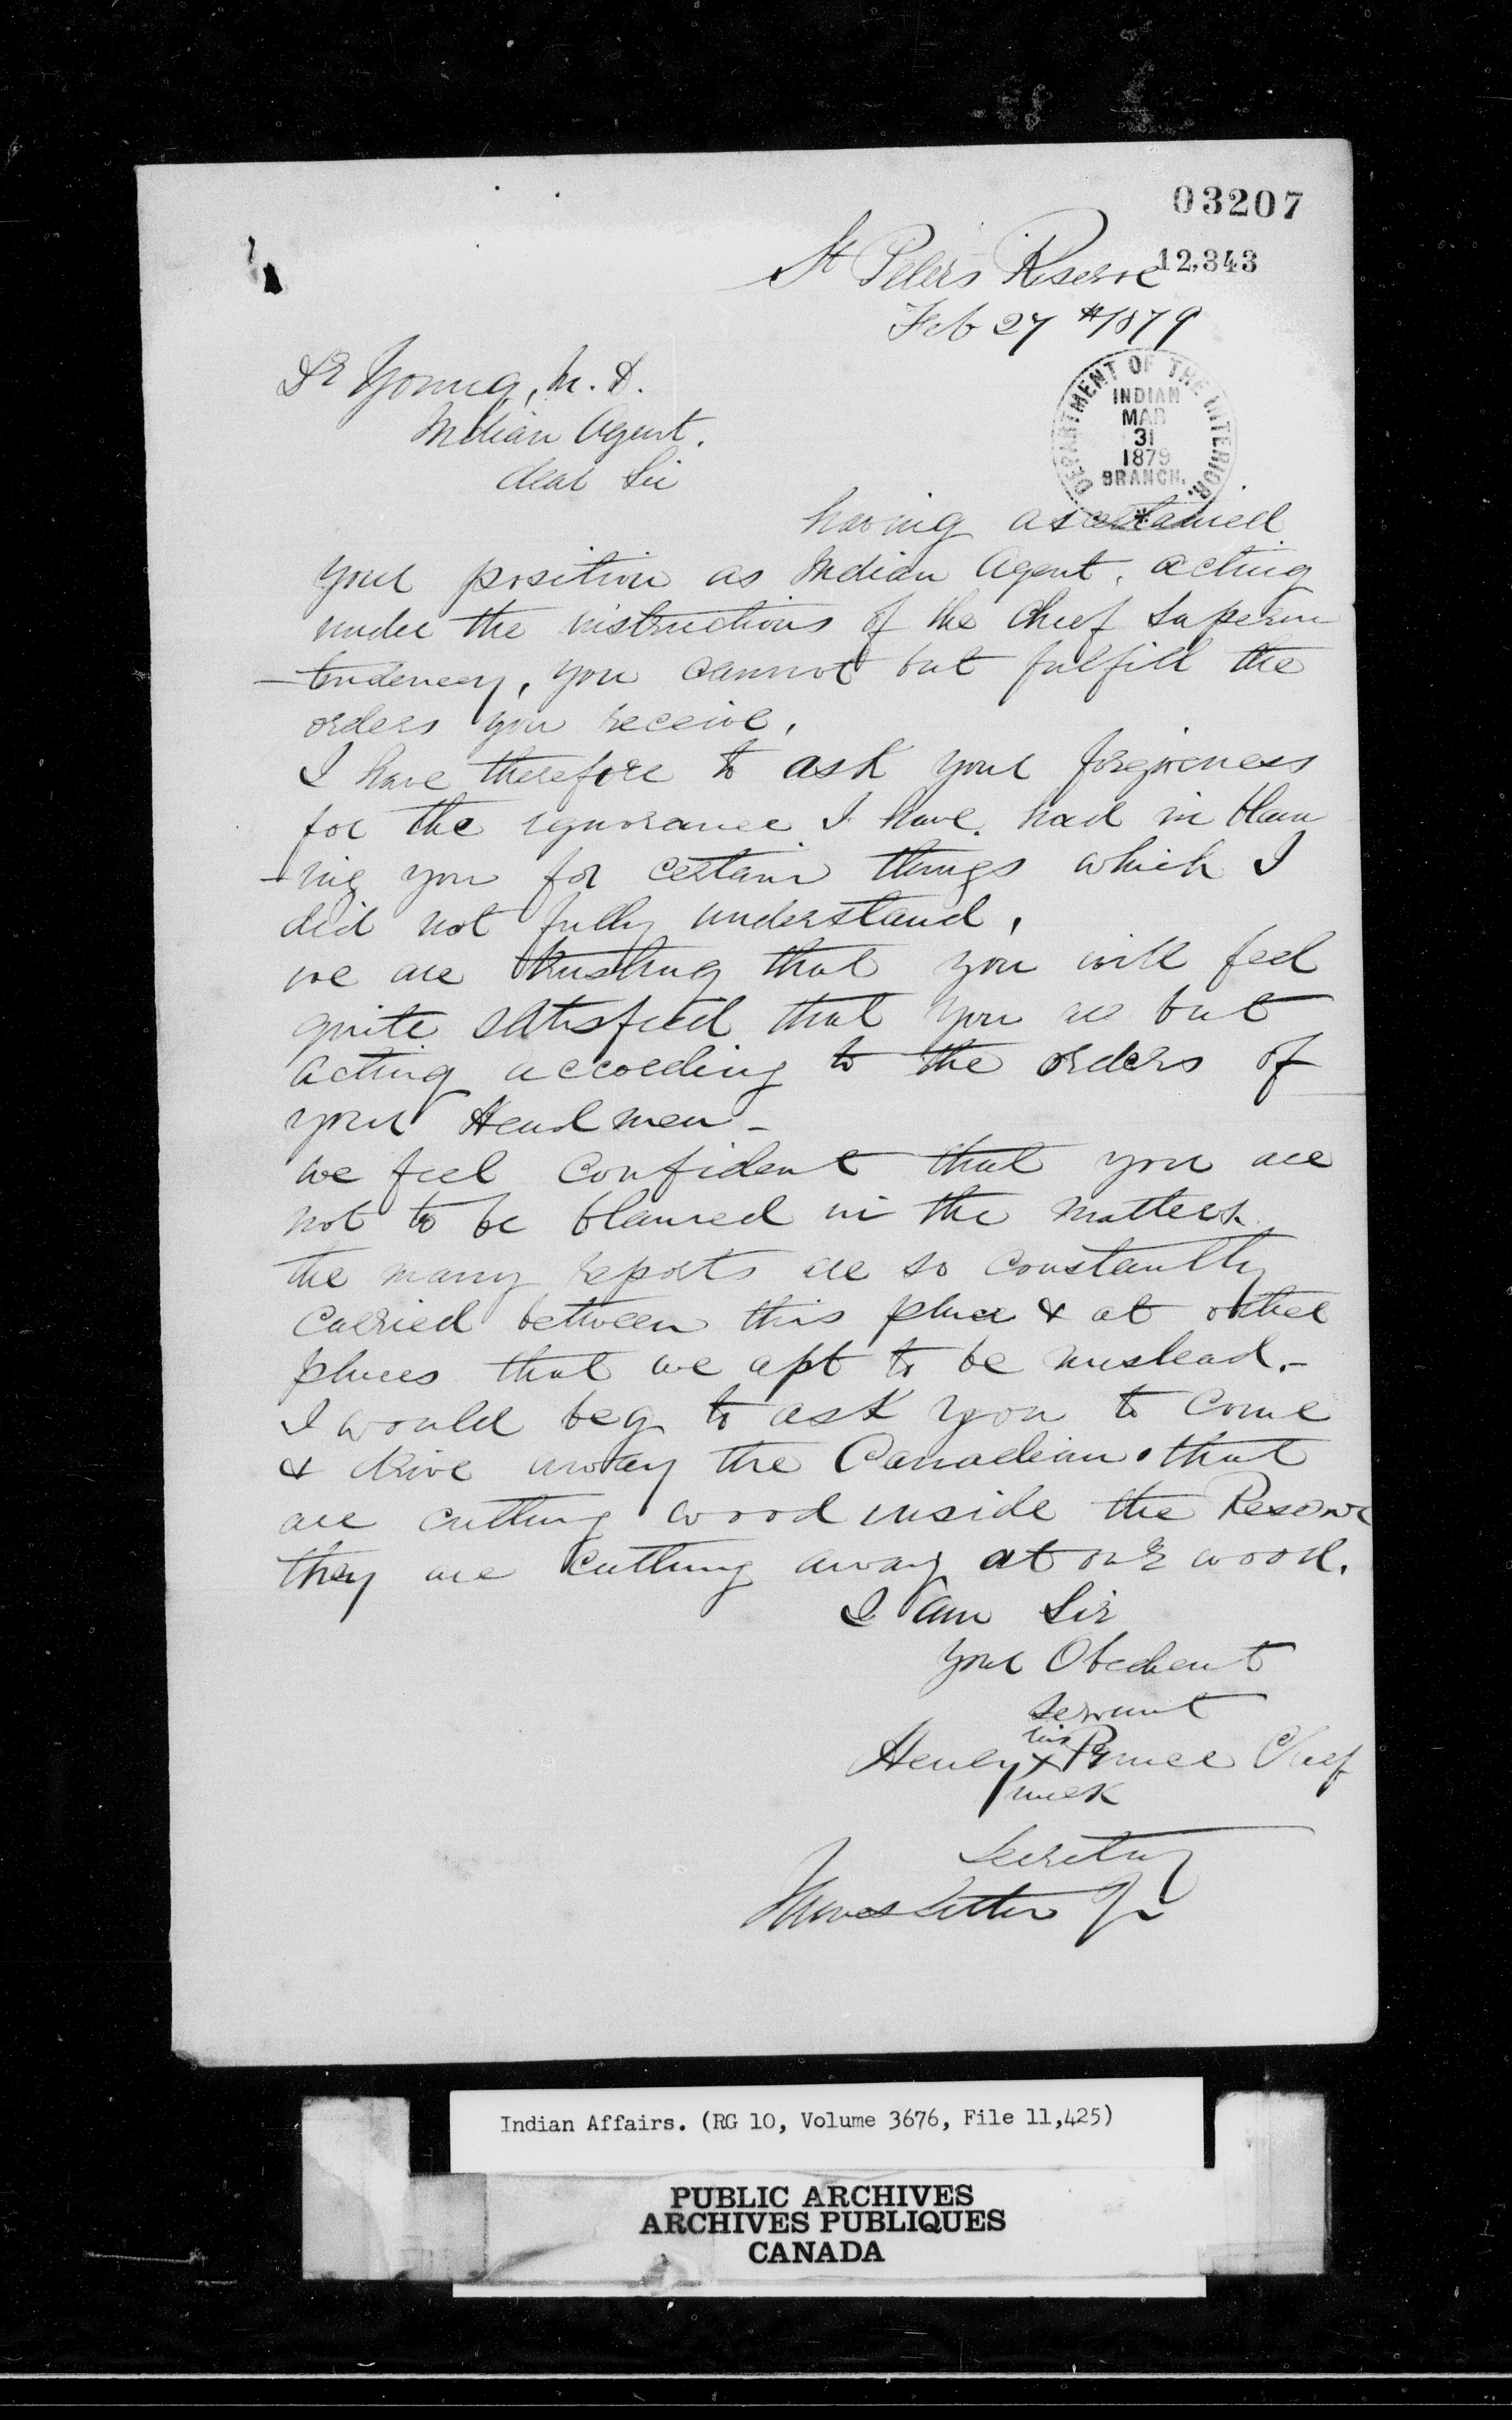 03207
12,343
St Peters Reserve
Feb 27th 1879
Dr Young, M.D.
Indian Agent.
dear Sir
DEPARTMENT OF THE INTERIOR.
INDIAN
MAR
31
1879
BRANCH.
having ascertained
your position as Indian Agent, acting
under the instructions of the Chief Superin
-tendency, you cannot but fulfill the
orders you receive,
I have therefore to ask your forgiveness
for the ignorance I have had in blam
-ing you for certain things which I
did not fully understand,
we are trusting that you will feel
quite satisfied that you are but
acting according to the orders of
your Head men -
we feel confident that you are
not to be blamed in the matters
the many reports are so constantly
carried between this place & at other
places that we apt to be mislead.-
I would beg to ask you to come
& drive away the Canadians that
are cutting wood inside the Reserve
they are cutting away at our wood.
I am Sir
your Obedient
servant
his
Henry X Prince Chief
mark
Secretary
James Settee Jr
Indian Affairs. (RG 10, Volume 3676, File 11,425)
PUBLIC ARCHIVES
ARCHIVES PUBLIQUES
CANADA